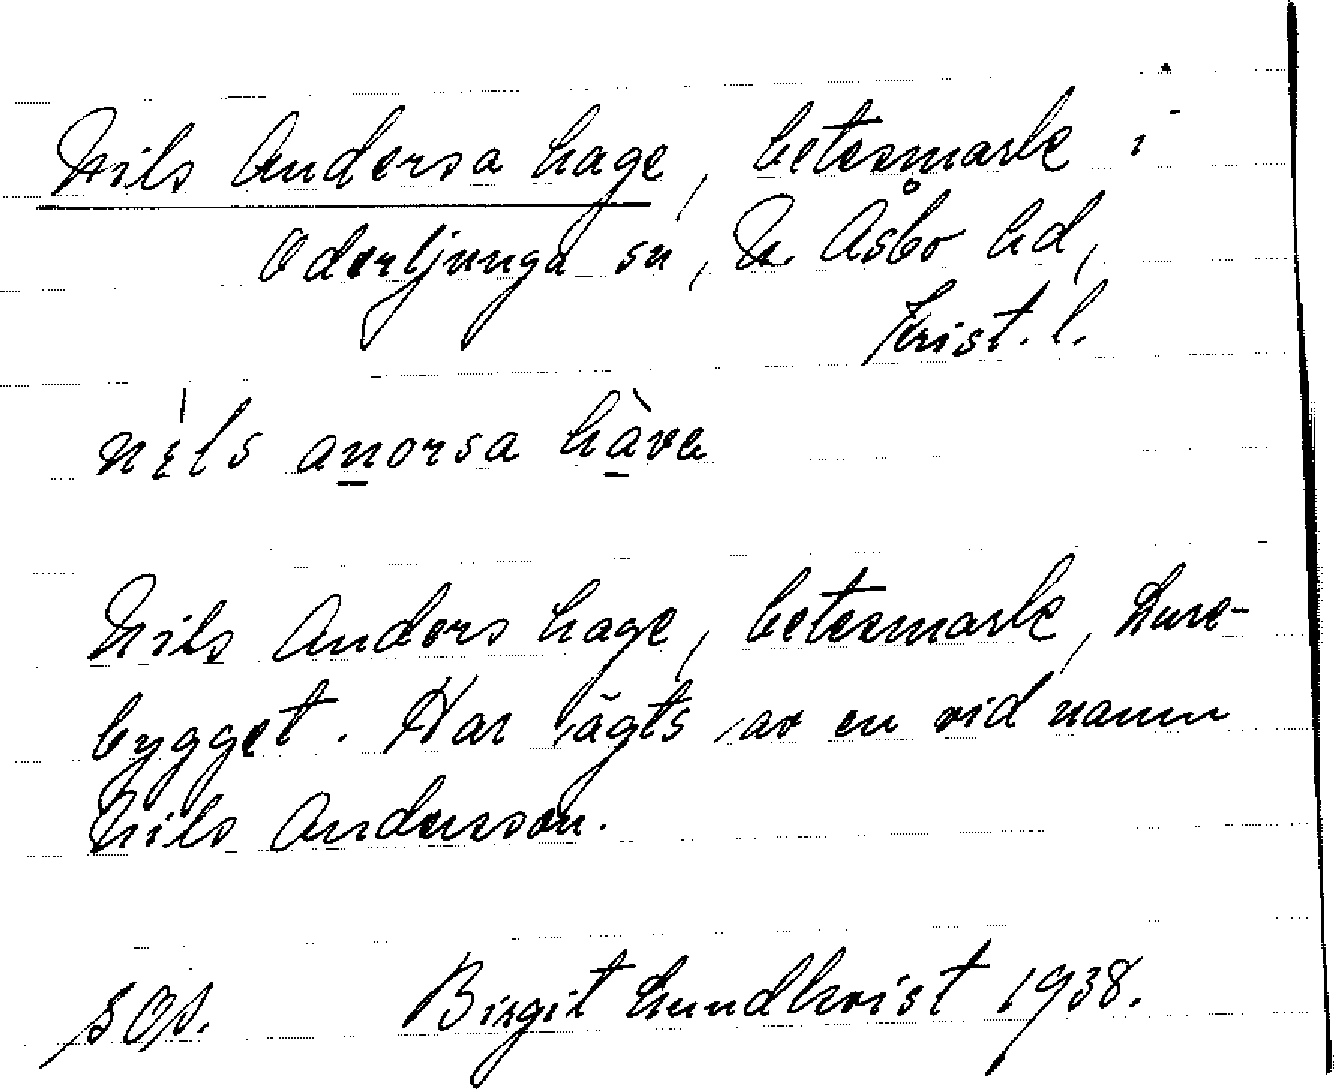 Nils Andersa hage, betesmark i
Oderljunga sn, N Åsbo hd,
Krist. l.
nils anorsa hàva
Nils Anders hage, betesmark, Lure-
bygget. Har ägts av en vid namn
Nils Andersson.
SOA. Birgit Lundkvist 1938.